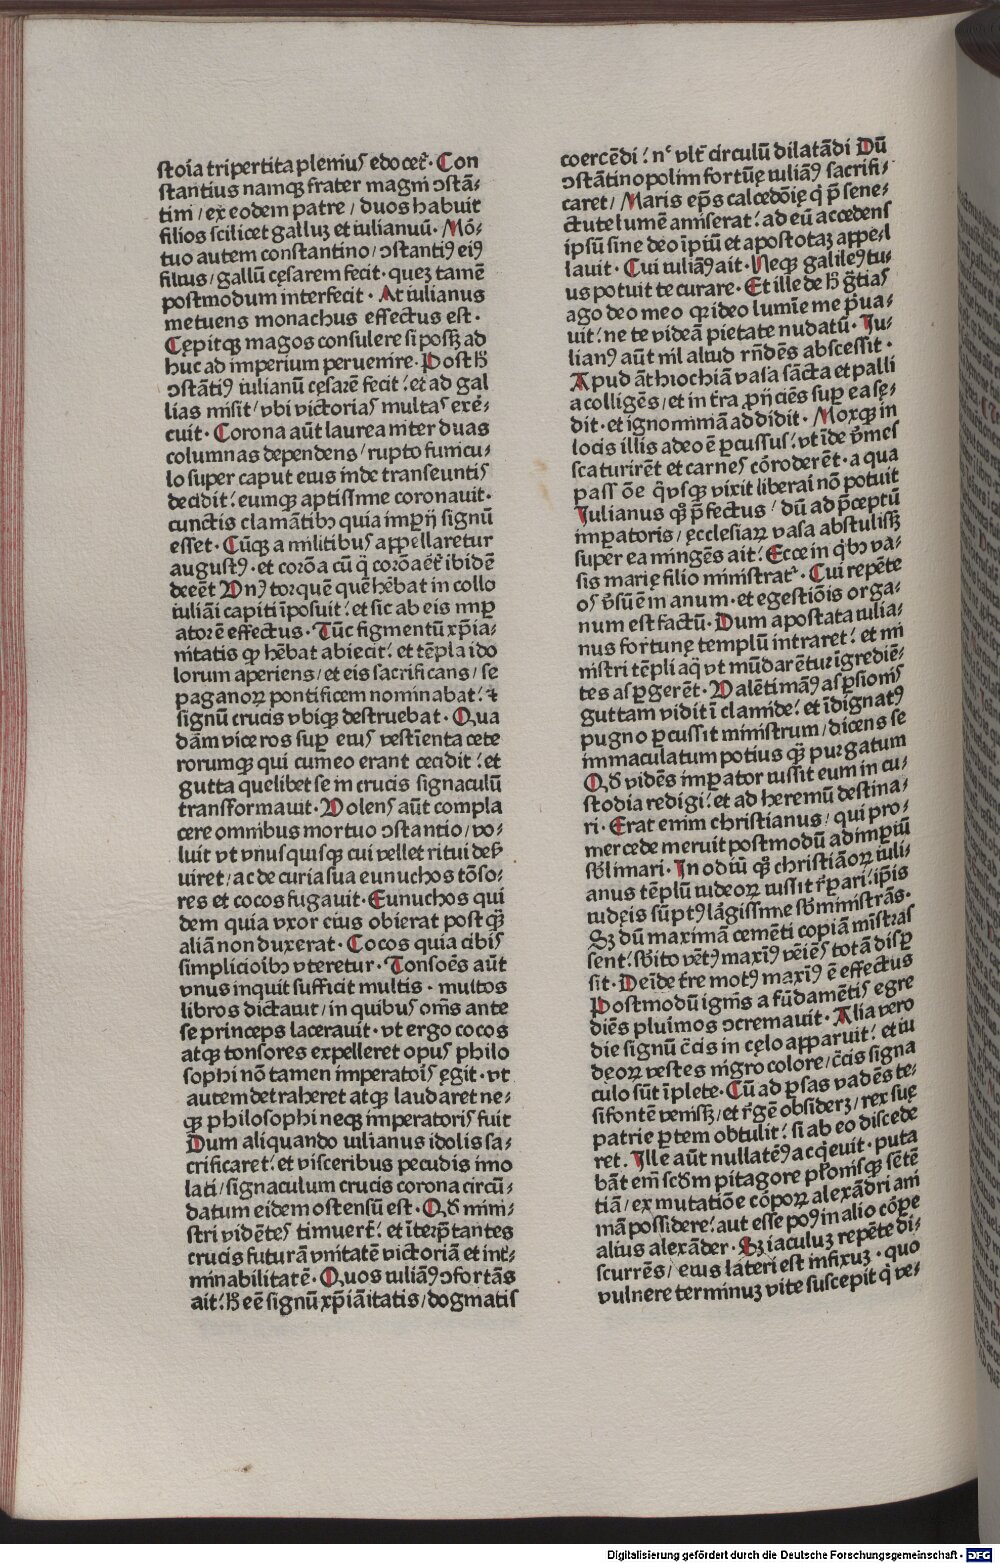 stoīa tripertita pleniuſ edocet᷑· Con
stantius namqꝫ frater magni ↄstā⸗
tini / ex eodem patre / duos habuit
filios scilicet galluꝫ et iulianuū· Mō⸗
tuo autem constantino / ↄstantiꝰ eiꝰ
filius / gallū cęsarem fecit· queꝫ tamē
postmodum interfecit· At iulianus
metuens monachus effectus est·
Cępitqꝫ magos consulere si possꝫ ad
huc ad imperium peruenire· Post h̄
ↄstātiꝰ iulianū cęsarē fecit ⁝ et ad gal
lias misit / vbi victoriaſ multaſ exē⸗
cuit· Corona aūt laurea inter duas
columnas dependens / rupto funicu⸗
lo super caput eius inde transeuntiſ
decidit ⁝ eumqꝫ aptissime coronauit·
cunctis clamātibꝫ quia imꝑij signū
esset· Cūqꝫ a militibuſ appellaretur
augustꝰ· et corōa cū q̄ corōaēt᷑ ibidē
deeēt Vnꝰ torquē quē hēbat in collo
iuliāi capiti īposuit ⁝ et sic ab eis imꝑ
atorē effectus· Tūc figmentū xp̄ia⸗
nitatis qꝫ hēbat abiecit ⁝ et tēpla ido
lorum aperiens / et eis sacrificans / se
paganoꝝ pontificem nominabat ⁝ ⁊
signū crucis vbiqꝫ destruebat· Qua
dām vice ros suꝑ eiuſ vestīenta cete
rorumqꝫ qui cum eo erant cecidit ⁝ et
gutta quelibet se in crucis signaculū
transformauit· Volens aūt compla
cere omnibus mortuo ↄstantio / vo⸗
luit vt vnusquisqꝫ cui vellet ritui deẜ
uiret / ac de curia sua eunuchos tōso⸗
res et cocos fugauit· Eunuchos qui
dem quia vxor eius obierat post quā
aliā non duxerat· Cocos quia cibiſ
simplicioībꝫ vteretur· Tonsoēs aūt
vnus inquit sufficit multis· multos
libros dictauit / in quibuſ om̄s ante
se princeps lacerauit· vt ergo cocos
atqꝫ tonsores expelleret opuſ philo
sophi nō tamen imperatoīſ ęgit· vt
autem detraheret atqꝫ laudaret ne⸗
qꝫ philosophi neqꝫ imperatoriſ fuit
Dum aliquando iulianus idolis sa⸗
crificaret ⁝ et visceribus pecudis imo
lati / signaculum crucis corona circū⸗
datum eidem ostensū est· Qđ mini⸗
stri vidēteſ timuert᷑ ⁝ et īterp̄tantes
crucis futurā vnitatē victoriā et int᷑⸗
minabilitatē· Quos iuliāꝰ ↄfortās
ait ⁝ h̄ eē signū xp̄iāitatis / dogmatis
coercēdi ⁝ nᶜ vlt᷑ circulū dilatādi Dū
ↄstātinopolim fortūę iuliāꝰ sacrifi⸗
caret / Maris ep̄s calcedōię q̇ p̄ sene⸗
ctute lumē amiserat ⁝ ad eū accedens
ipsū sine deo īpiū et apostotaꝫ appel
lauit· Cui iuliāꝰ ait· Neqꝫ galileꝰ tu⸗
us potuit te curare· Et ille de h̄ gr̄tiaſ
ago deo meo qꝫ ideo lumīe me p̄ua⸗
uit ⁝ ne te videā pietate nudatū· Ju⸗
lianꝰ aūt nil aliud rn̄dēs abscessit·
Apud āthiochiā vasa sācta et palli
a colligēs / et in tr̄a ꝓijciēs suꝑ ea sę⸗
dit· et ignominiā addidit· Moxqꝫ in
locis illis adeo ē ꝑcussus ⁝ vt īde v̄mes
scaturirēt et carneſ cōroderēt· a qua
pass ōe q̇vsqꝫ vixit liberaī nō potuit
Julianus qꝫ p̄fectus / dū ad p̄ceptū
imperatoris / ęcclesiaꝝ vasa abstulissꝫ
super ea mingēs ait ⁝ Ecce in q̇bꝫ va⸗
sis marię filio ministratᷣ· Cui repēte
oſ v̄sū ē in anum· et egestiōis orga⸗
num est factū· Dum apostata iulia⸗
nus fortunę templū intraret ⁝ et mi
nistri tēpli aq̄ vt mūdarētur īgrediē⸗
tes asꝑgerēt· Valētimāꝰ asꝑsiomſ
guttam vidit ī clamide ⁝ et īdignatꝰ
pugno ꝑcussit ministrum / dicens se
immaculatum potius quā purgatum
Qđ vidēs imꝑator iussit eum in cu⸗
stodia redigi ⁝ et ad heremū destina⸗
ri· Erat enim christianus / qui pro⸗
mercede meruit postmodū ad imꝑiū
sb̄limari· In odiū qꝫ christiāoꝝ iuli⸗
anus tēplū iudeoꝝ iussit r̄ꝑari ⁝ ip̄is
iudęis sūptꝰ lāgissime sb̄ministrās·
Sꝫ dū maximā cemēti copiā mīstraſ
sent ⁝ sb̄ito vētꝰ maxīꝰ vēiēſ totā disꝑ
sit· Deīde tr̄e motꝰ maxīꝰ ē effectus
Postmodū ignīs a fūdamētiſ egre
diēs pluīmos ↄcremauit· Alia vero
die signū c̄cis in cęlo apparuit ⁝ et iu
deoꝝ vestes nigro colore / c̄cis signa
culo sūt īplete· Cū ad ꝑsas vadēs te⸗
sifontē venissꝫ / et r̄gē obsiderꝫ / rex suę
patrie ꝑtem obtulit ⁝ si ab eo discede
ret· Ille aūt nullatēꝰ acq̇euit· puta
bāt em̄ scđm pitagore pl̄oniſqꝫ sētē
tiā / ex mutatiōe cōpoꝝ alexādri ani
mā possidere ⁝ aut esse poꝰ in alio cōpe
alius alexāder· Sꝫ iaculuꝫ repēte di⸗
scurrēs / eius lateri est infixuꝫ· quo
vulnere terminuꝫ vite suscepit q̇ ve⸗
Digitalisierung gefördert durch die Deutsche Forschungsgemeinschaft · DFG